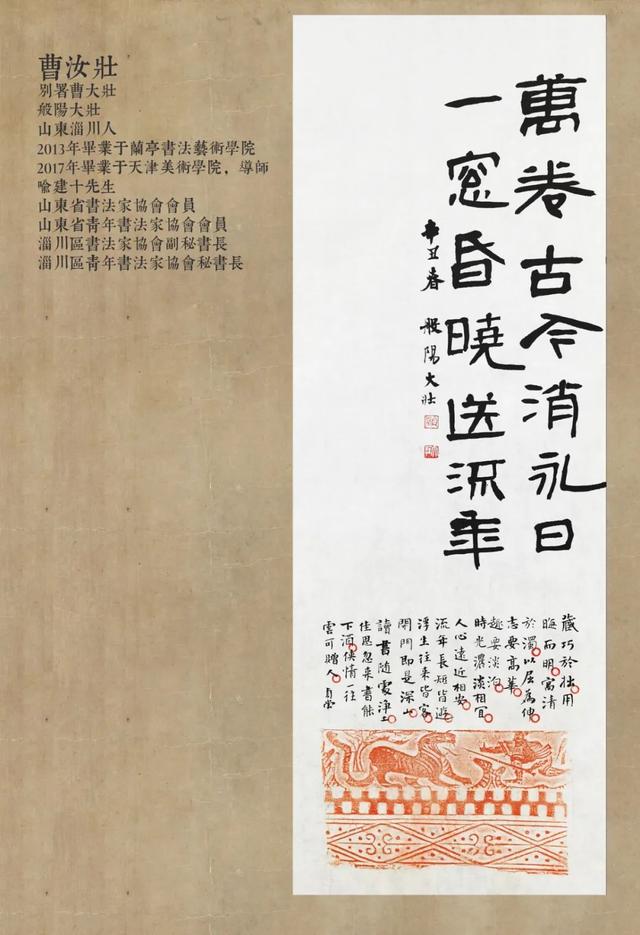 曹汝壯
别署曹大壯
般陽大壯
山東淄川人
2013年畢業于蘭亭書法藝術學院
2017年畢業于天津美術學院，導師
喻建十先生
山東省書法家協會會員
山東省青年書法家協會會員
淄川區書法家協會副秘書長
淄川區青年書法家協會秘書長
萬卷古今消永日
一窓昏曉送流年
辛丑春 般陽大壯
藏巧於拙用
晦而明寓清
於濁以屈為伸
志要高華
趣要淡泊
時光濃淡相宜
人心遠近相安
流年長短皆
浮生往來皆客
閉門即是深山
讀書隨處淨土
佳思忽来書能
下酒俠情一往
雲可贈人